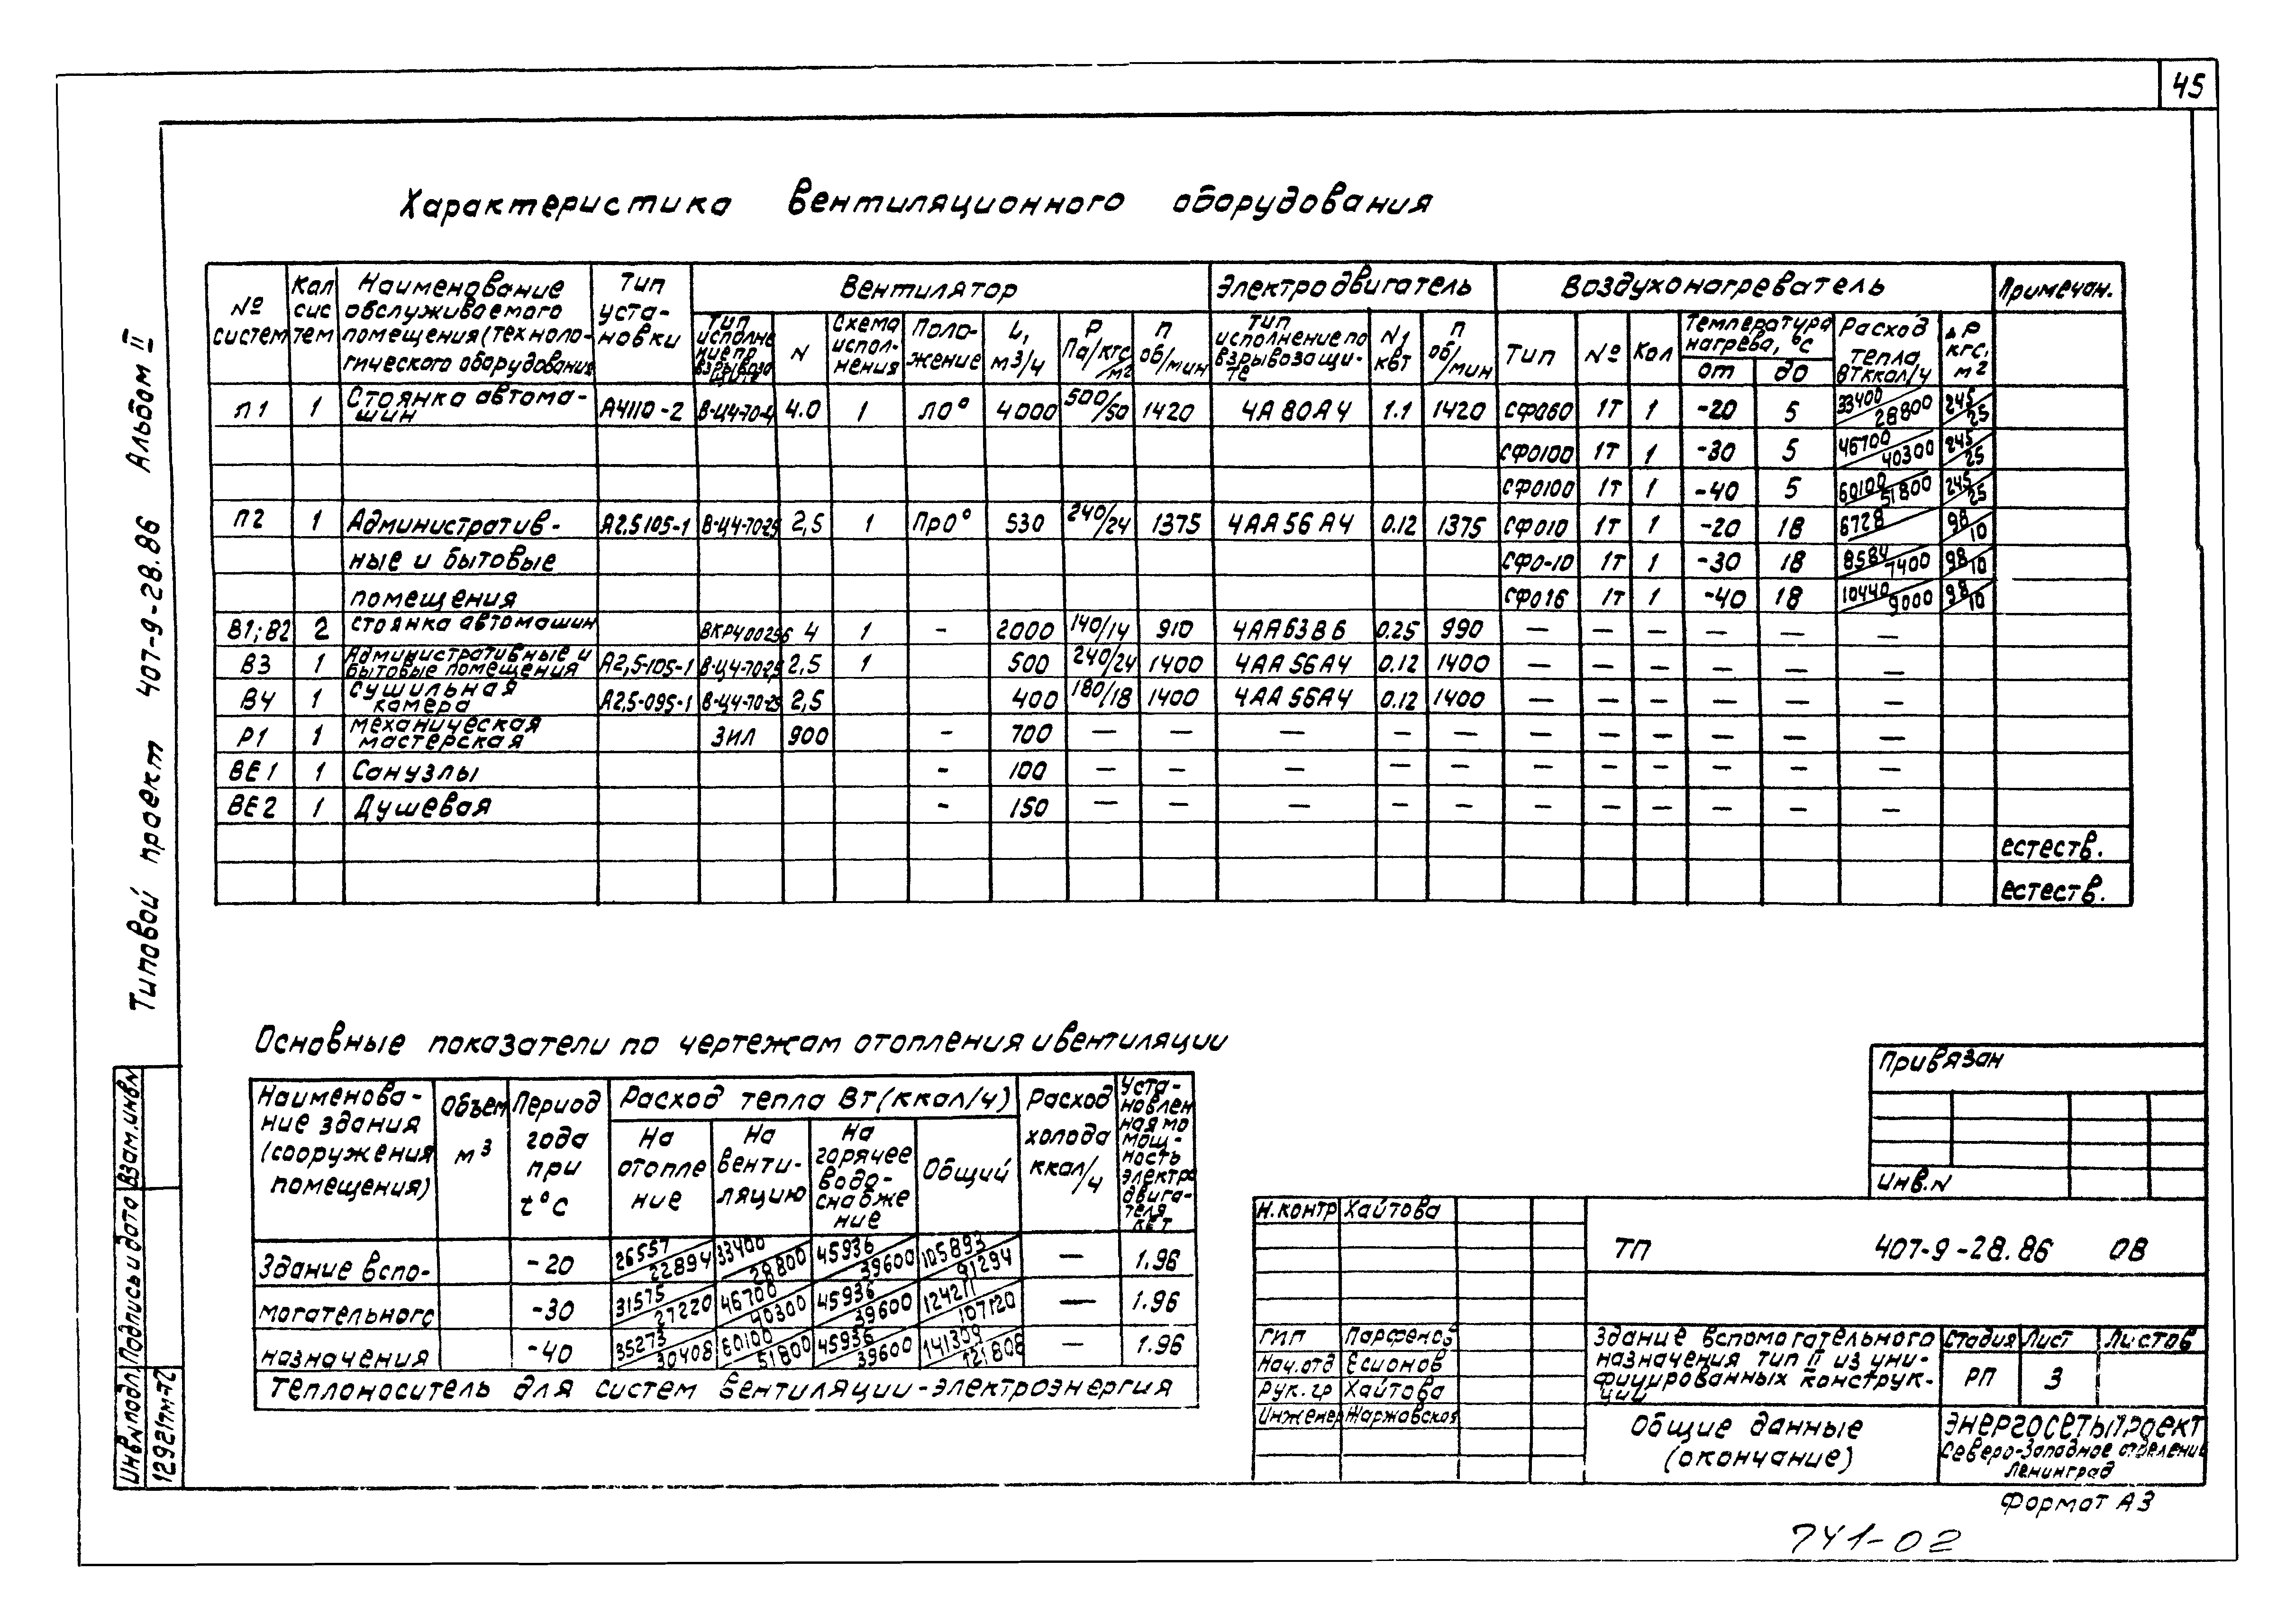 45
Характеристика вентиляционного оборудования
№ систем | Кол сис тем | Наименование обслуживаемого помещения (техноло- гического оборудования | Тип уста- новки | Вентилятор | Электродвигатель | Воздухонагреватель | Примечан.
Тип исполне ние по взрывоза щите | N | Схема испол- нения | Поло- жение | L, м3/ч | Р Па/кгс/м2 | п об/мин | Тип исполнение по взрывозащи- те | N, квт | п об/мин | Тип | № | Кол | Температура нагрева, °С | Расход тепла, Вт ккал/ч | ΔР кгс/м2
от | до
П1 | 1 | Стоянка автома- шин | А4110-2 | В-Ц4-70-4 | 4.0 | 1 | Л0° | 4000 | 500/50 | 1420 | 4А80А4 | 1.1 | 1420 | СФО60 | 1Т | 1 | -20 | 5 | 33400/28800 | 245/25
СФО100 | 1Т | 1 | -30 | 5 | 46700/40300 | 245/25
СФО100 | 1Т | 1 | -40 | 5 | 60100/51800 | 245/25
П2 | 1 | Административ- | А2.5105-1 | В-Ц4-70-25 | 2,5 | 1 | Пр0° | 530 | 240/24 | 1375 | 4АА56А4 | 0.12 | 1375 | СФО10 | 1Т | 1 | -20 | 18 | 6728/ | 98/10
ные и бытовые | СФО-10 | 1Т | 1 | -30 | 18 | 8584/7400 | 98/10
помещения | СФО16 | 1Т | 1 | -40 | 18 | 10440/9000 | 98/10
В1;В2 | 2 | стоянка автомашин | ВКР400256 | 4 | 1 | - | 2000 | 140/14 | 910 | 4АА63В6 | 0.25 | 990 | — | — | — | — | — | —
В3 | 1 | Административные и бытовые помещения | А2,5-105-1 | В-Ц4-70-2,5 | 2,5 | 1 | 500 | 240/24 | 1400 | 4АА56А4 | 0.12 | 1400 | — | — | — | — | — | —
В4 | 1 | сушильная камера | А2,5-095-1 | В-Ц4-70-25 | 2,5 | 400 | 180/18 | 1400 | 4АА56А4 | 0.12 | 1400 | — | — | — | — | — | —
Р1 | 1 | механическая мастерская | ЗИЛ | 900 | - | 700 | — | — | — | — | — | — | — | — | — | — | —
ВЕ1 | 1 | Санузлы | - | 100 | — | — | — | — | — | — | — | — | — | — | —
ВЕ2 | 1 | Душевая | - | 150 | — | — | — | — | — | — | — | — | — | — | —
естеств.
естеств.
Основные показатели по чертежам отопления и вентиляции
Наименова- ние здания (сооружения помещения) | Объем м3 | Период года при t°С | Расход тепла Вт (ккал/ч) | Расход холода ккал/ч | Уста- новлен ная мо мощ- ность электро двига- теля кВт
На отопле ние | На венти- ляцию | На горячее водо- снабже ние | Общий
Здание вспо- | -20 | 26557/22894 | 33400/28800 | 45936/39600 | 105893/91294 | — | 1.96
могательного | -30 | 31575/27220 | 46700/40300 | 45936/39600 | 124211/107120 | — | 1.96
назначения | -40 | 35273/30408 | 60100/51800 | 45936/39600 | 141309/121808 | — | 1.96
Теплоноситель для систем вентиляции - электроэнергия
Привязан
Инв.N
Н.контр Хайтова
ТП 407-9-28.86 ОВ
ГИП Парфенов
Нач.отд Есионов
Рук.гр Хайтова
Инженер Жаржовская
Здание вспомогательного
назначения тип II из уни-
фицированных конструк-
ций
Стадия Лист Листов
РП 3
Общие данные
(окончание)
ЭНЕРГОСЕТЬПРОЕКТ
Северо-Западное отделение
Ленинград
Формат А3
741-02
Типовой проект 407-9-28.86 Альбом II
Инв.N подл. Подпись и дата Взам.инв.N
12921тм-т2